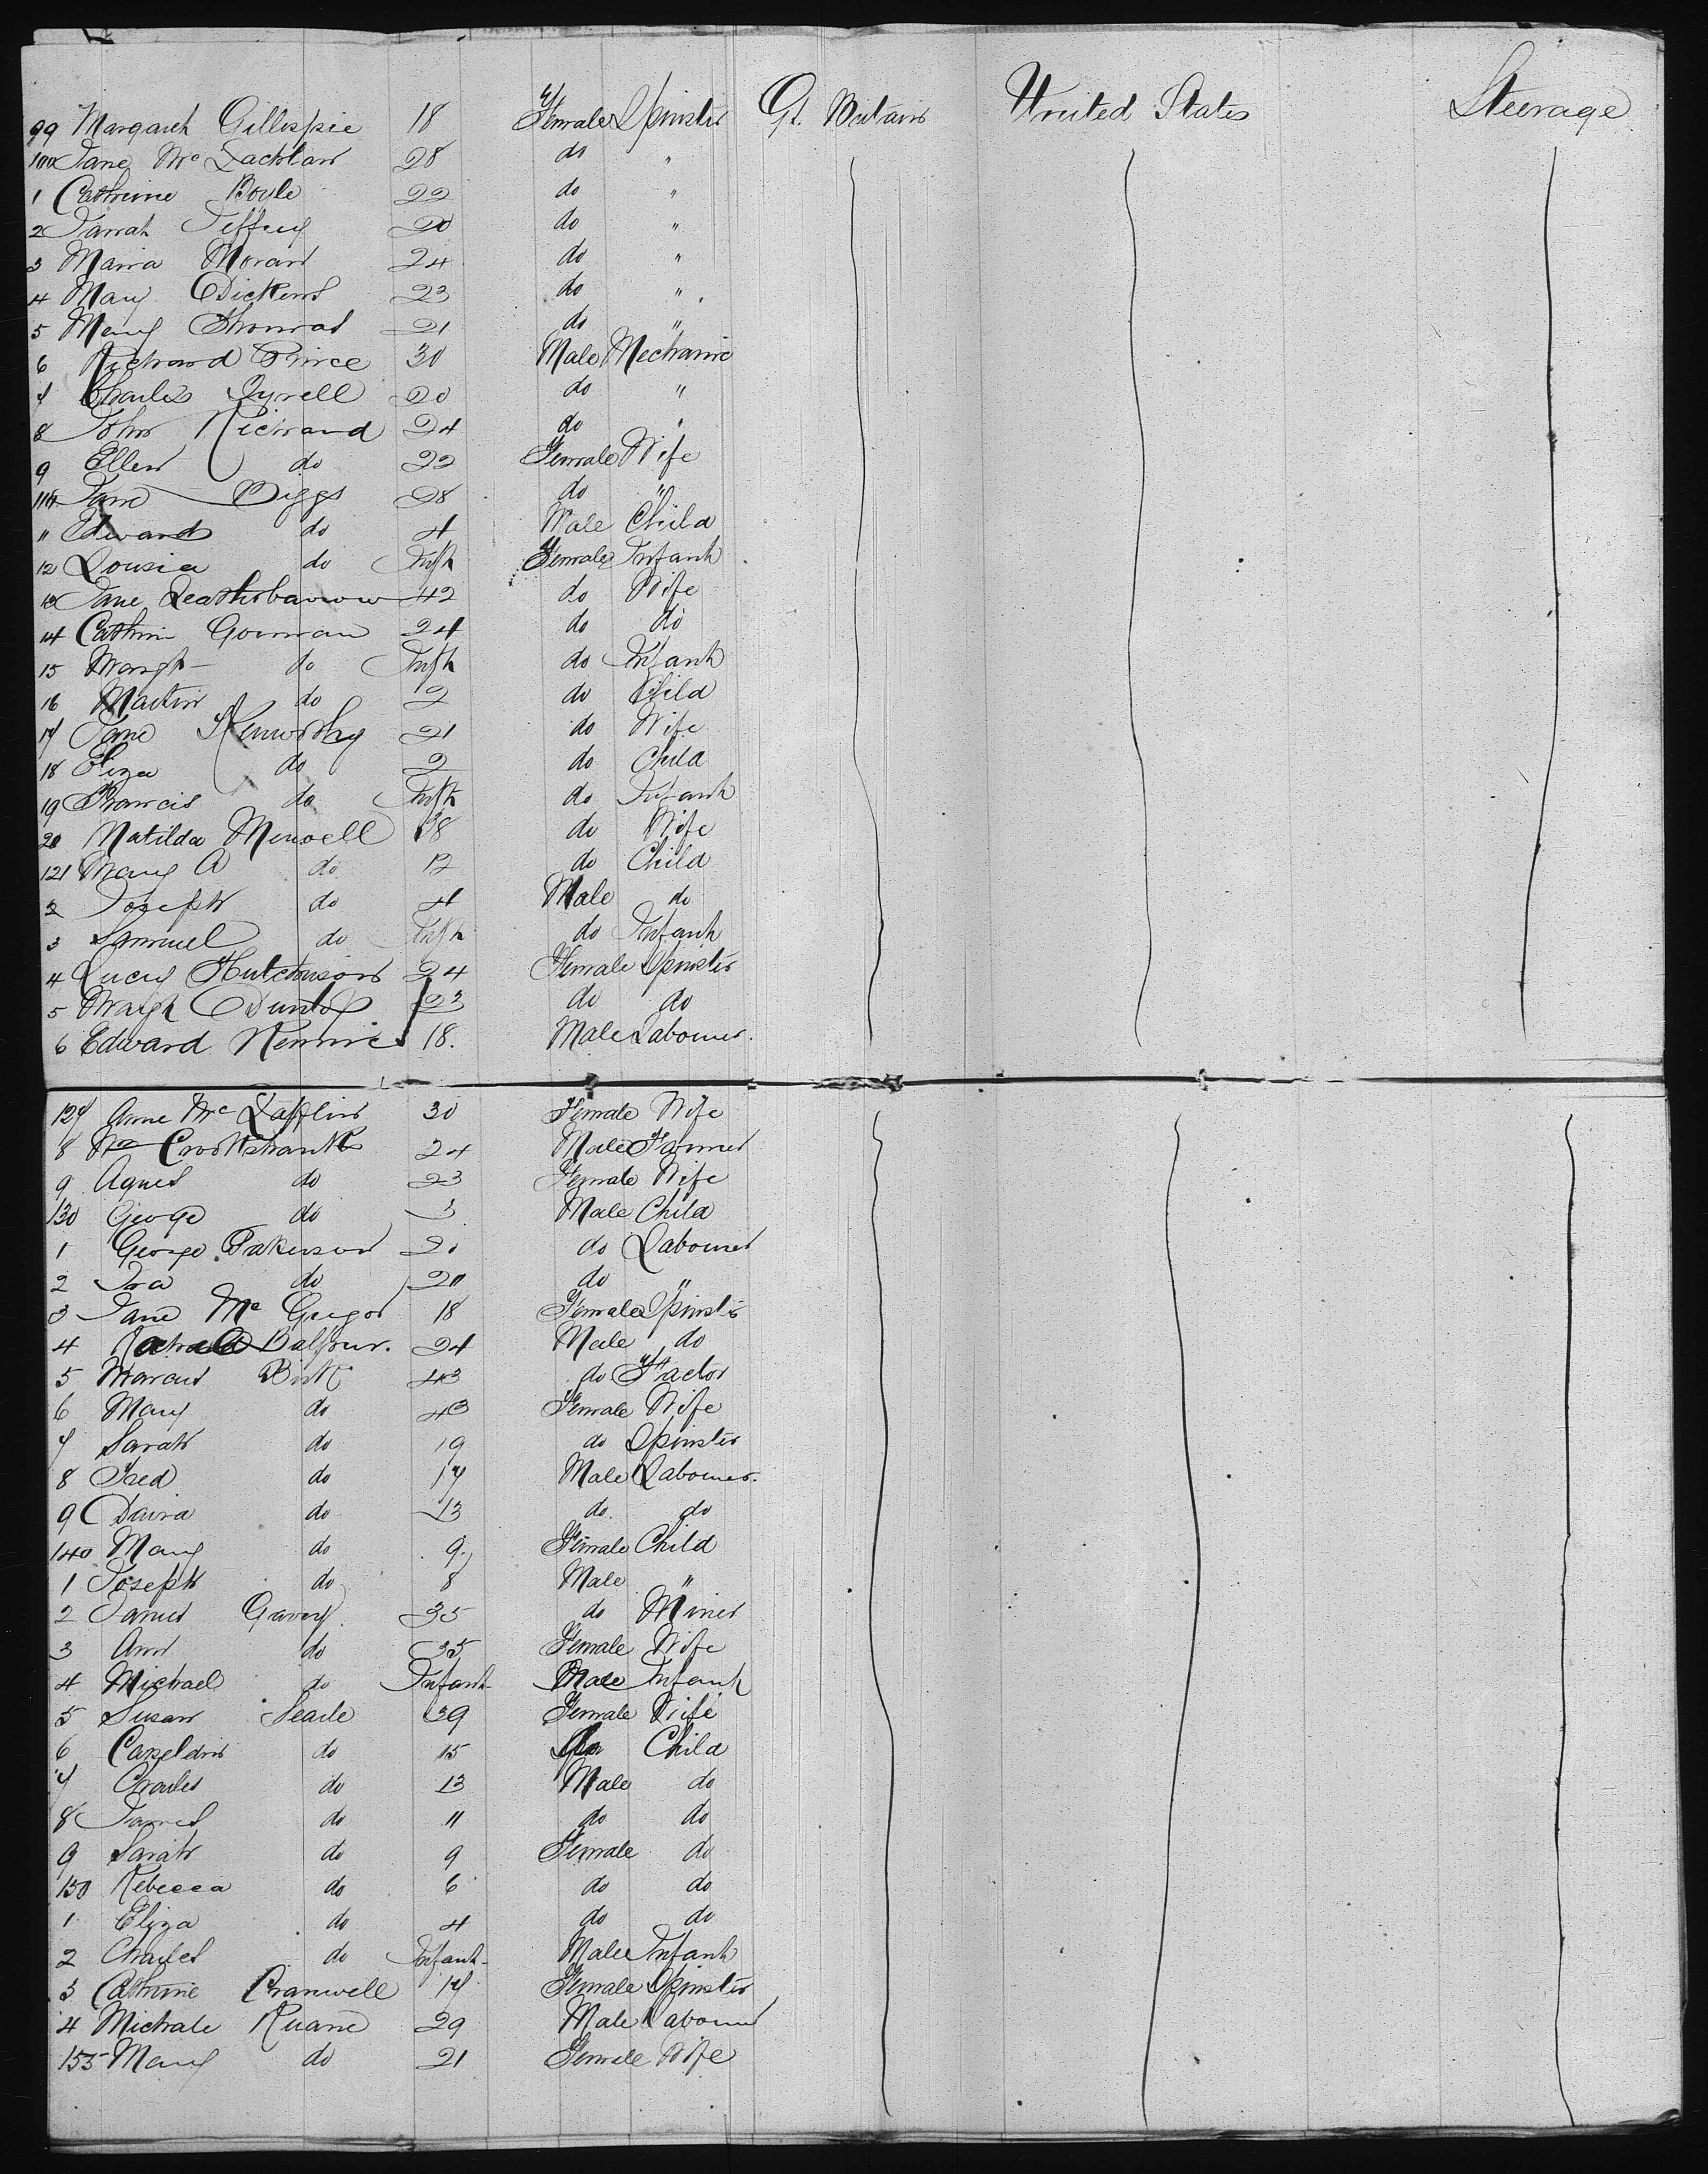 99 Margaret Gillespie 18 Female Spinster Gt. Britain United States Steerage
100 Jane Mc Lachlan 28 do "
1 Cathrine Boyle 22 do "
2 Sarah Jeffrey 20 do "
3 Maria Moran 24 do "
4 Mary Dickens 23 do "
5 Mary Thomas 21 do "
6 Richard Prince 30 Male Mechanic
7 Charles Tyrell 20 do "
8 John Richard 24 do "
9 Ellen do 22 Female Wife
110 Jane Biggs 28 do "
11 Edward do 4 Male Child
12 Lousia do Inft Female Infant
13 Jane Leatherbarrow 42 do Wife
14 Cathrin Gorman 24 do do
15 Margt do Inft do Infant
16 Martin do 2 do Child
17 Jane Kenworthy 21 do Wife
18 Eliza do 2 do Child
19 Francis do Inft do Infant
20 Matilda Mewell 38 do Wife
121 Mary A do 12 do Child
2 Joseph do 4 Male do
3 Samuel do Inft do Infant
4 Lucy Hutchinson 24 Female Spinster
5 Margt 23 do do
6 Edward Rennie 18. Male Labourer.
127 Anne Mc Lafflin 30 Female Wife
8 Wm Crookshanks 24 Male Farmer
9 Agnes do 23 Female Wife
130 George do 3 Male Child
1 George Parkinson 20 do Labourer
2 Ira do 20 do "
3 Jane Mc Gregor 18 Female Spinster
4 Balfour. 24 Male do
5 Marcus Birk 43 do Factor
6 Mary do 43 Female Wife
7 Sarah do 19 do Spinster
8 Fred do 17 Male Labourer.
9 David do 13 do. do
140 Mary do 9. Female Child
1 Joseph do 8 Male "
2 James Garvey 35 do Miner
3 Ann do 35 Female Wife
4 Michael do Infant Male Infant
5 Susan Searle 39 Female Wife
6 do 15 do Child
7 Charles do 13 Male do
8 James do 11 do do
9 Sarah do 9 Female do
150 Rebecca do 6 do do
1 Eliza do 4 do do
2 Charles do Infant Male Infant
3 Cathrine Cranwell 17 Female Spinster
4 Michale Ruane 29 Male Labourer
155 Mary do 21 Female Wife